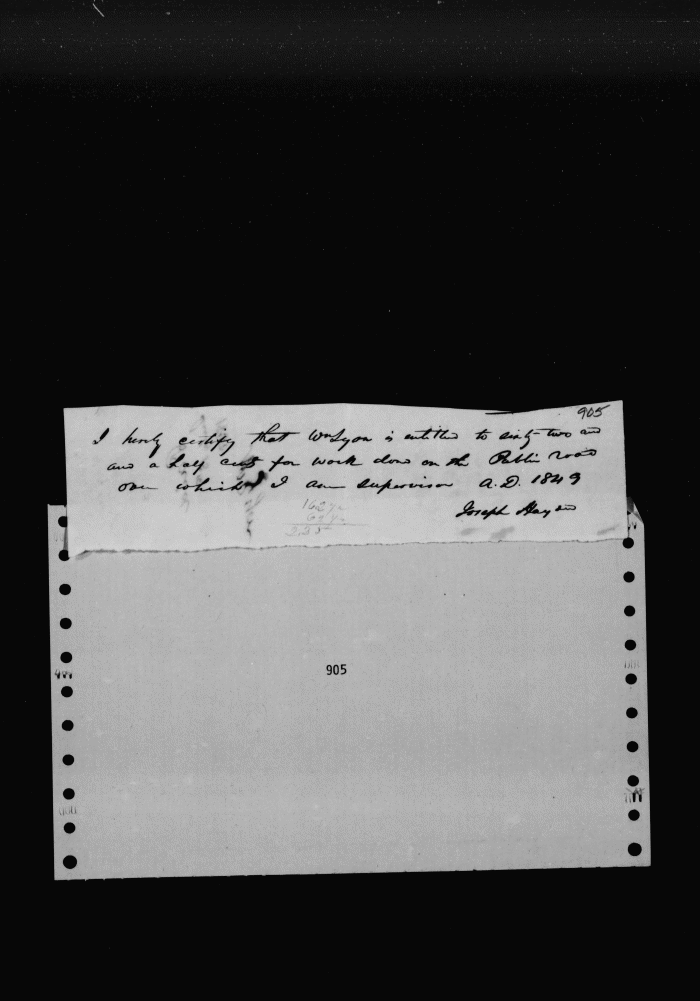 905
I hereby certify that Wm Lyon is entitled to sixty-two and
and a half cents for work done on the Public road
over which I am Supervisor A.D. 1849
Joseph Hayden
162 1/2
62 1/2
2.25
905